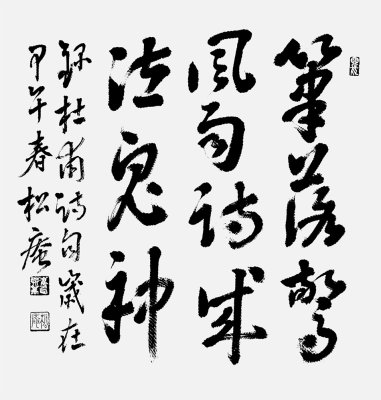 筆落驚
風雨詩成
泣鬼神
録杜甫詩句歲在
甲午春松庵